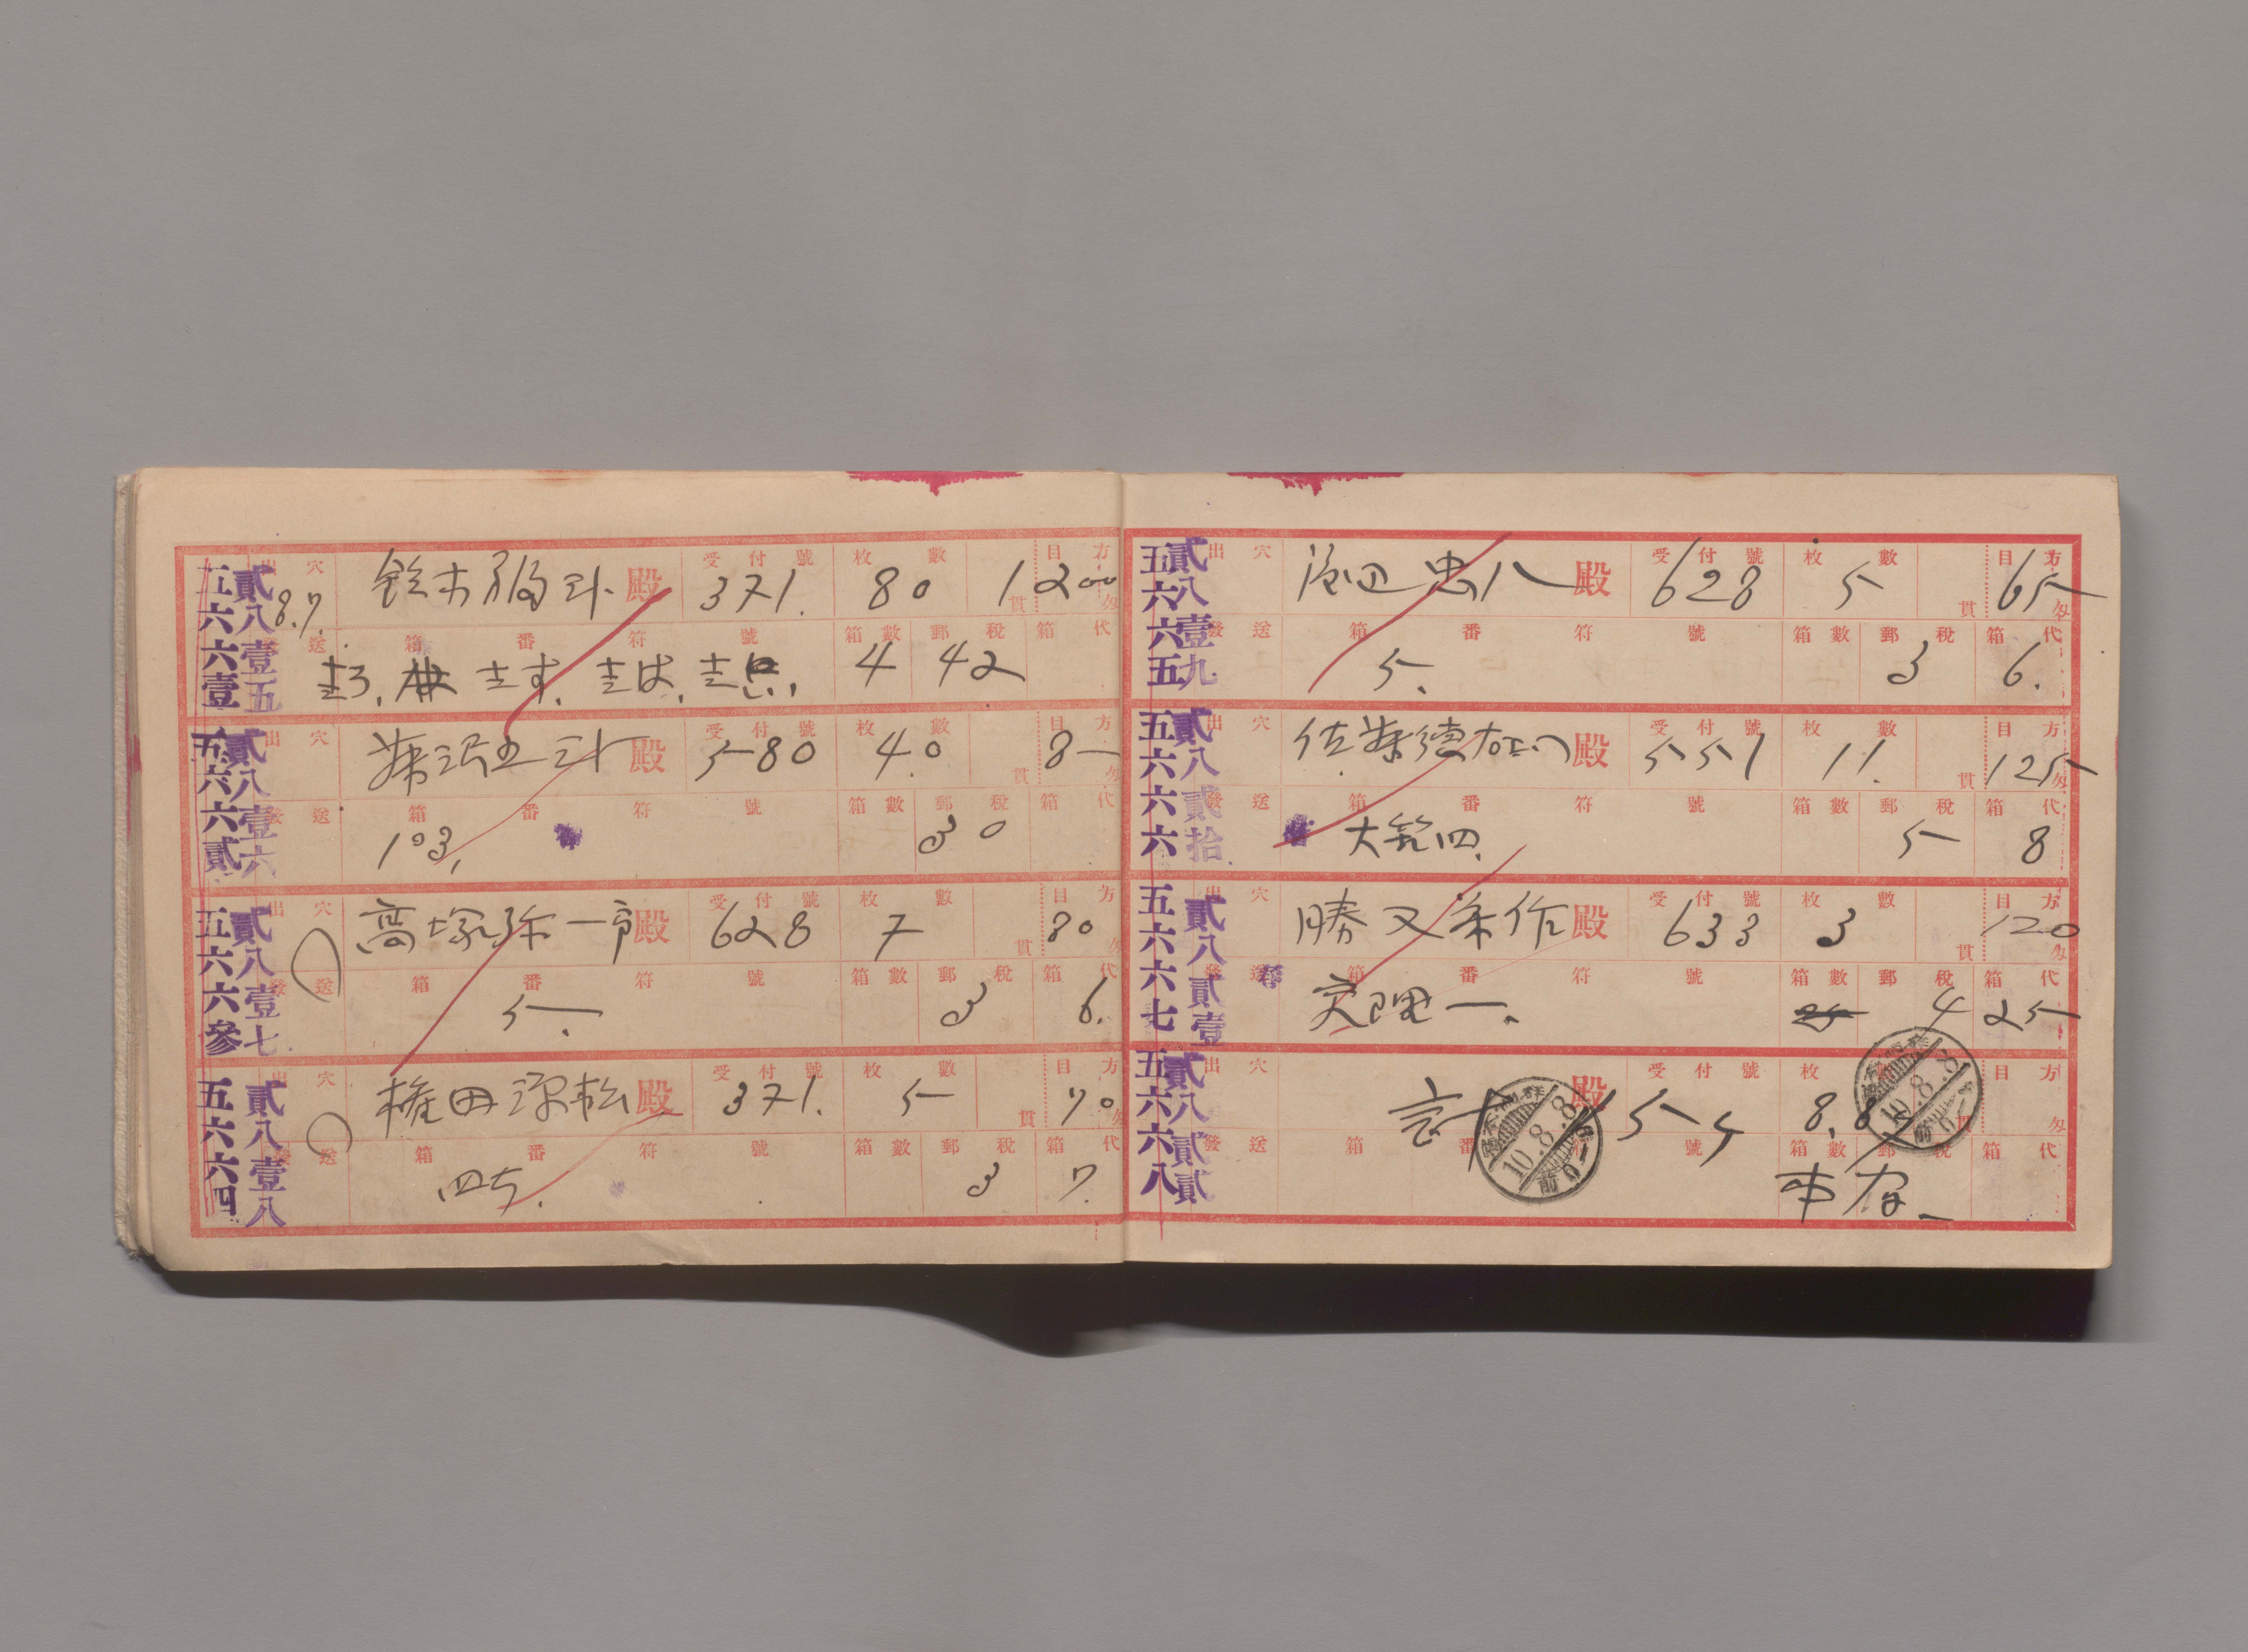 貳八壹五
五六六壹
出穴 8.7 鈴木 殿 受付號 371. 枚數 80 目方 1貫200匁
發送 箱番符號 箱數 4 郵稅 42 箱代
貳八壹六
五六六貳
出穴 殿 受付號 580 枚數 40 目方 貫 8 匁
發送 箱番符號 103. 箱數 郵稅 30 箱代
貳八壹七
五六六參
出穴 高塚弥一郎 殿 受付號 628 枚數 7 目方 貫 80 匁
發送 箱番符號 5. 箱數 郵稅 3 箱代 6.
貳八壹八
五六六四
出穴 権田源松 殿 受付號 371. 枚數 5 目方 貫 70 匁
發送 箱番符號 箱數 郵稅 3 箱代 7.
貳八壹九
五六六五
出穴 渡辺忠八 殿 受付號 628 枚數 5 目方 貫 65 匁
發送 箱番符號 5. 箱數 郵稅 3 箱代 6.
貳八貳拾
五六六六
出穴 佐藤德右エ门 殿 受付號 551 枚數 11. 目方 貫 125 匁
發送 箱番符號 箱數 郵稅 5 箱代 8
貳八貳壹
五六六七
出穴 勝又条作 殿 受付號 633 枚數 3 目方 貫 120 匁
發送 箱番符號 箱數 郵稅 4 箱代 25
貳八貳貳
五六六八
出穴 計 殿 受付號 枚數 目方 貫 匁
發送 箱番符號 箱數 郵稅 箱代
10.8.8
10.8.8